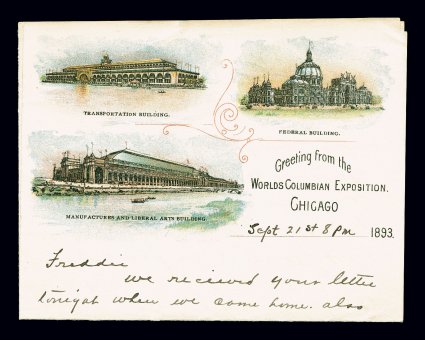 TRANSPORTATION BUILDING.
FEDERAL BUILDING.
MANUFACTURES AND LIBERAL ARTS BUILDING.
Greeting from the
WORLDS COLUMBIAN EXPOSITION.
CHICAGO
Sept 21st 8 PM 1893.
Freddie
we received your letter
tonight when we came home. also